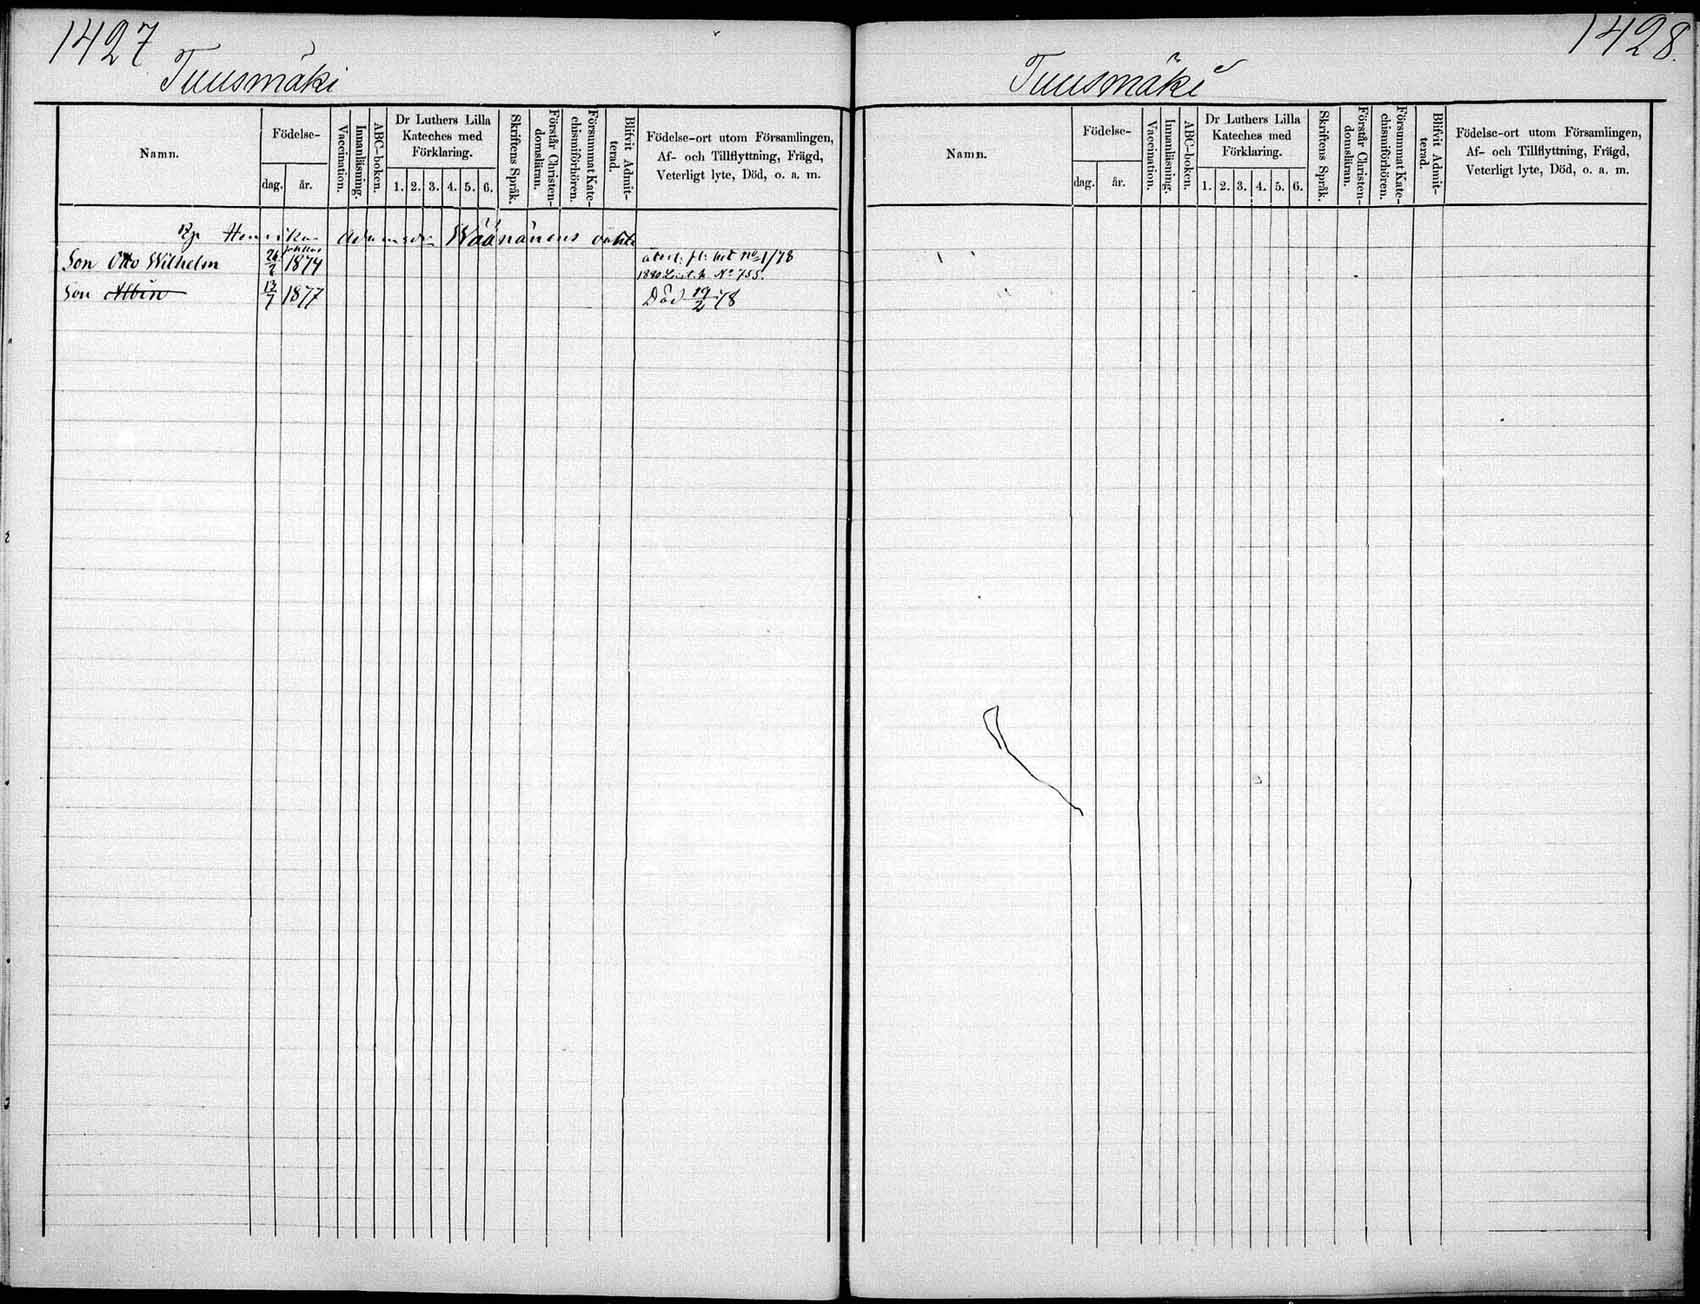 1427
Tuusmäki
Namn.
Födelse-
dag.
år.
Vaccination.
Innanläsning.
ABC-boken.
Dr Luthers Lilla
Kateches med
Förklaring.
1. 2. 3. 4. 5. 6.
Skriftens Språk.
Förstår Christen-
domsläran.
Försummat Kate-
chismiförhören.
Blifvit Admit-
terad.
Födelse-ort utom Församlingen,
Af- och Tillflyttning, Frägd,
Veterligt lyte, Död, o. a. m.
Henrika Wäänänens
Son Otto Wilhelm 1874 1/78
1880 No 755.
Son Albin 13/7 1877 Död 19/2 78
1428.
Tuusmäki
Namn.
Födelse-
dag.
år.
Vaccination.
Innanläsning.
ABC-boken.
Dr Luthers Lilla
Kateches med
Förklaring.
1. 2. 3. 4. 5. 6.
Skriftens Språk.
Förstår Christen-
domsläran.
Försummat Kate-
chismiförhören.
Blifvit Admit-
terad.
Födelse-ort utom Församlingen,
Af- och Tillflyttning, Frägd,
Veterligt lyte, Död, o. a. m.